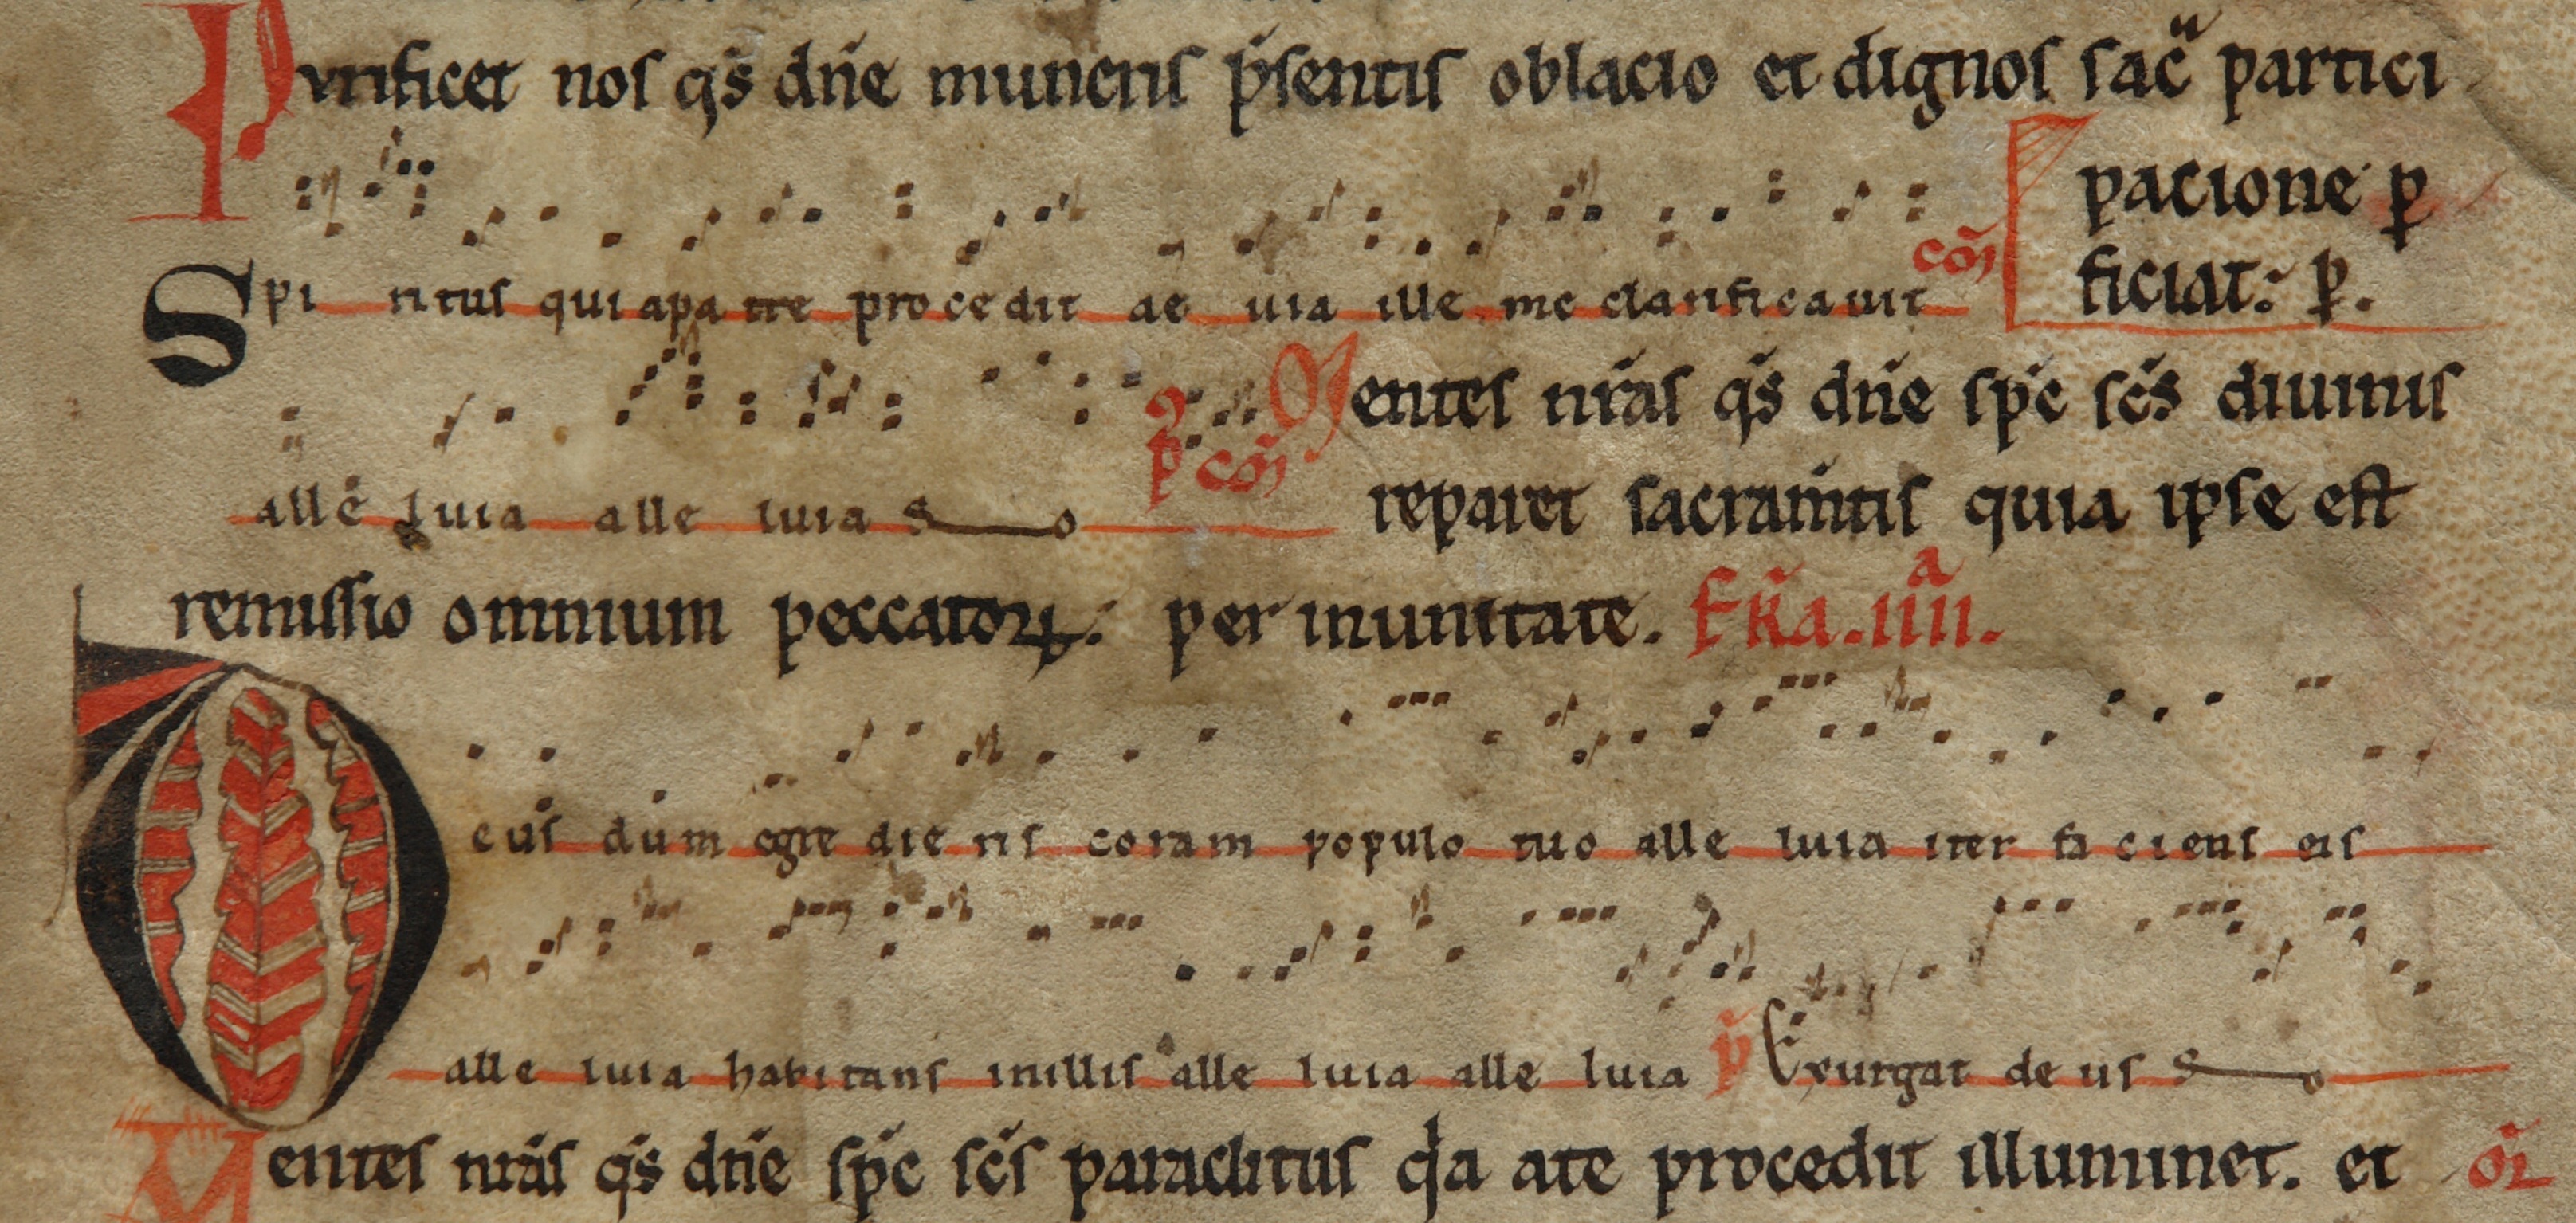 Purificet nos qs̄ dn̄e muneris p̄sentis oblacio et dignos sac̄ͣ partici
pacione p
ficiat. p.
Spiritus qui apatre procedit ae uia ille me clarificauit cōm
Mentes nr̄as qs̄ dn̄e sp̄c sc̄s diuinis
alle luia alle luia s o p̄ cōm
reparet sacram̄tis quia ipse est
remissio omnium peccatoꝝ. per inunitate. Fr̄a .iiiiᵃ.
Deus dum egre die ris coram populo tuo alle luia iter faciens eis
alle luia habitans inillis alle luia alle luia p̄ Exurgat deus s o
Mentes nr̄as qs̄ dn̄e sp̄c sc̄s paraclitus q̇a ate procedit illuminet. et or̄